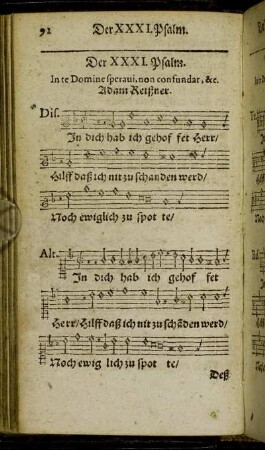 92 Der XXXI. Psalm.
Der XXXI. Psalm.
In te Domine speravi, non confundar, &c.
Adam Reißner.
Dis.
In dich hab ich gehof fet Herr/
Hilff daß ich nit zu schanden werd/
Noch ewiglich zu spot te/
Alt.
In dich hab ich gehof fet
Herr/ Hilff daß ich nit zu schãden werd/
Noch ewig lich zu spot te/
Deß